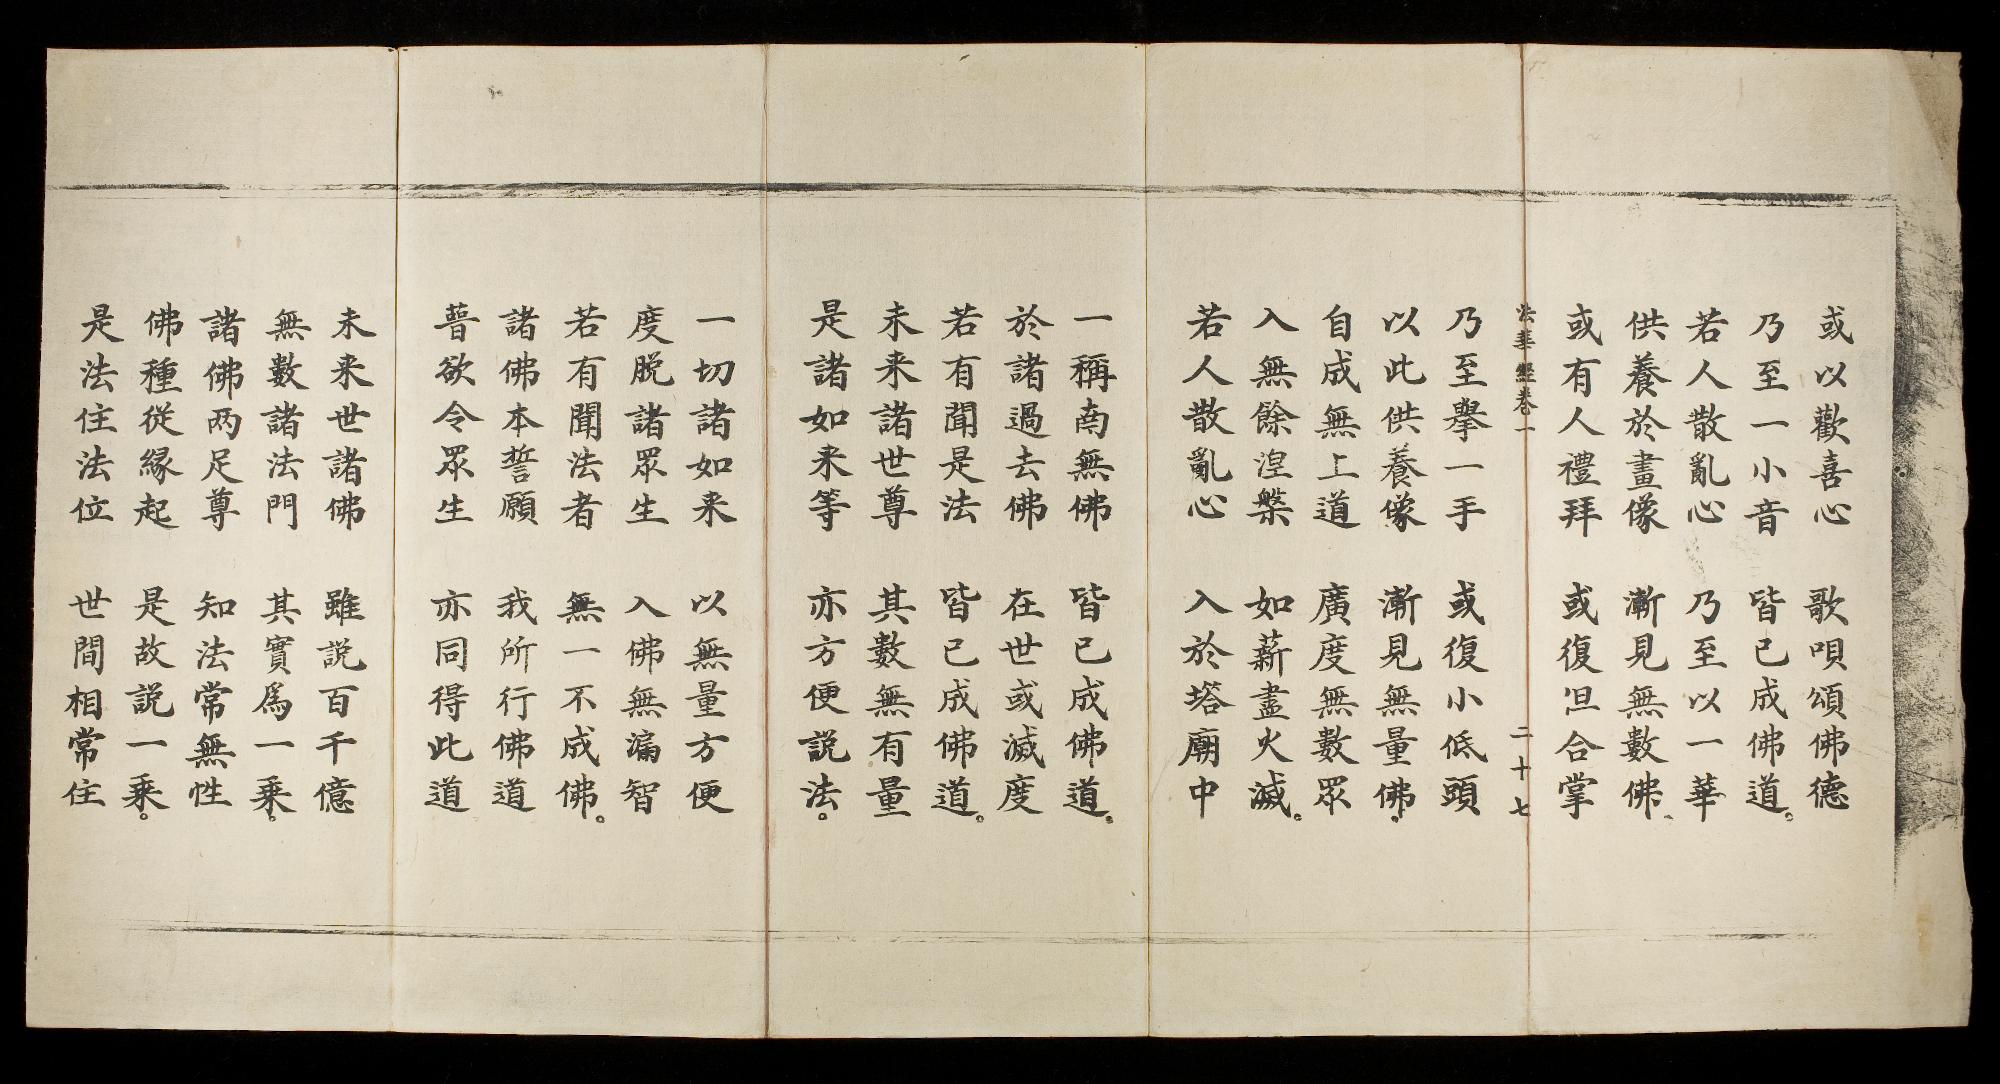 或以歡喜心　歌唄頌佛德
乃至一小音　皆已成佛道。
若人散亂心　乃至以一華
供養於畫像　漸見無數佛、
或有人禮拜　或復但合掌
法華經卷一　二十七
乃至擧一手　或復小低頭
以此供養像　漸見無量佛。
自成無上道　廣度無數眾
入無餘涅槃　如薪盡火滅。
若人散亂心　入於塔廟中
一稱南無佛　皆已成佛道。
於諸過去佛　在世或滅度
若有聞是法　皆已成佛道。
未来諸世尊　其數無有量
是諸如来等　亦方便説法。
一切諸如来　以無量方便
度脱諸眾生　入佛無漏智
若有聞法者　無一不成佛。
諸佛本誓願　我所行佛道
普欲令眾生　亦同得此道
未来世諸佛　雖説百千億
無數諸法門　其實為一乗。
諸佛两足尊　知法常無性
佛種從緣起　是故説一乗。
是法住法位　世間相常住